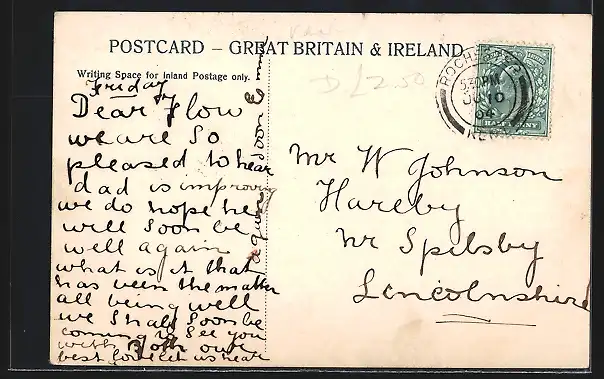 POSTCARD – GREAT BRITAIN & IRELAND
Writing Space for Inland Postage only.
Friday
Dear Flow
we are so
pleased to hear
dad is improving
we do hope he
will soon be
well again
what is it that
has been the matter
all being well
we shall soon be
coming to see you
with Both our
best love let us hear
again soon E
Mr W Johnson
Hareby
Nr Spilsby
Lincolnshire
D £2.50
ROCHESTER
PM
JU 10
04
KENT
HALFPENNY